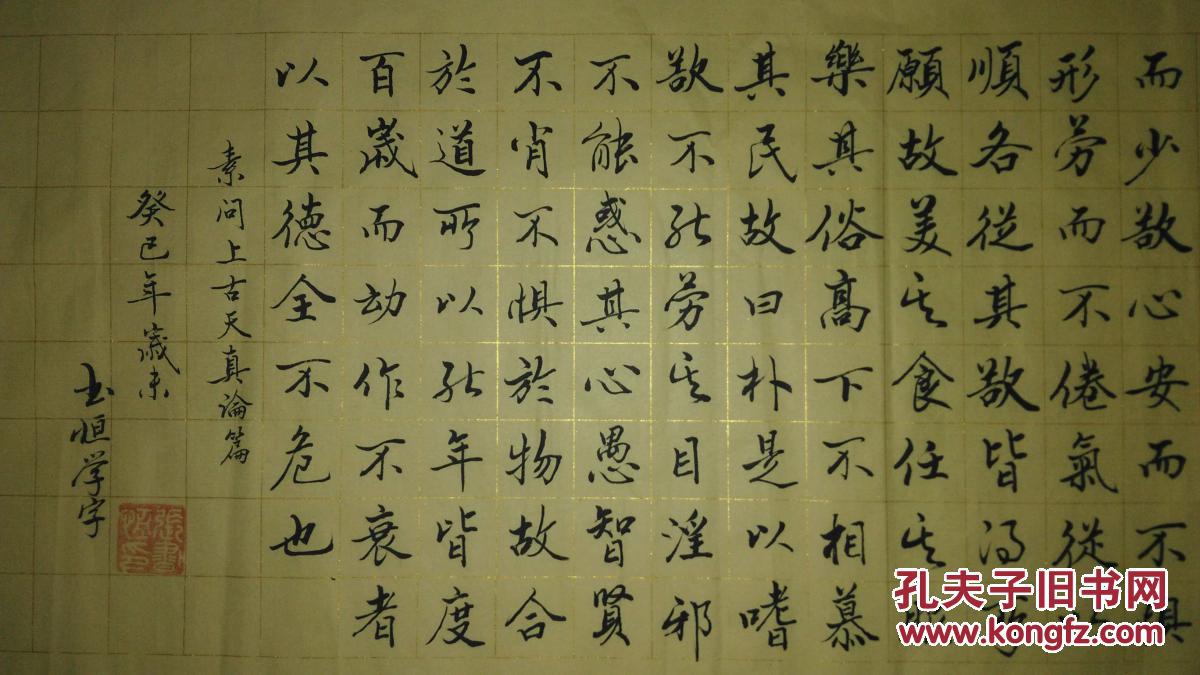 而少欲心安而不惧
形劳而不倦氣從
順各從其欲皆得所
願故美其食任其服
樂其俗高下不相慕
其民故曰朴是以嗜
欲不能劳其目淫邪
不能惑其心愚智賢
不肖不惧於物故合
於道所以能年皆度
百歲而动作不衰者
以其德全不危也
素问上古天真論篇
癸巳年歲末
书恒学字
張書恒印
孔夫子旧书网
www.kongfz.com